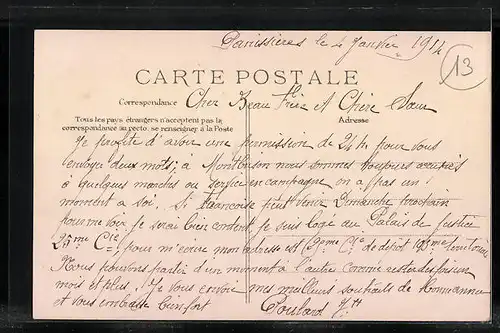 Panissières le 4 Janvier 1914
13
CARTE POSTALE
Correspondance
Adresse
Cher Beau Frère et Chère Sœur
Tous les pays étrangers n'acceptent pas la
correspondance au recto, se renseigner à la Poste
Je profite d'avoir une permission de 24 h pour vous
envoyer deux mots; à Montbrison nous sommes toujours occupés
à quelques marches ou service en campagne on a pas un
moment a soi. Si Francoise peut venir Dimanche prochain
pour me voir je serai bien content je suis logé au Palais de Justice
25me Cie pour m'ecrire mon adresse est Cie de depot Territoriale
Nous pouvons partir d'un moment à l'autre comme rester des
mois et plus. Je vous envoie mes meilleurs souhaits de
et vous embrasse bien fort